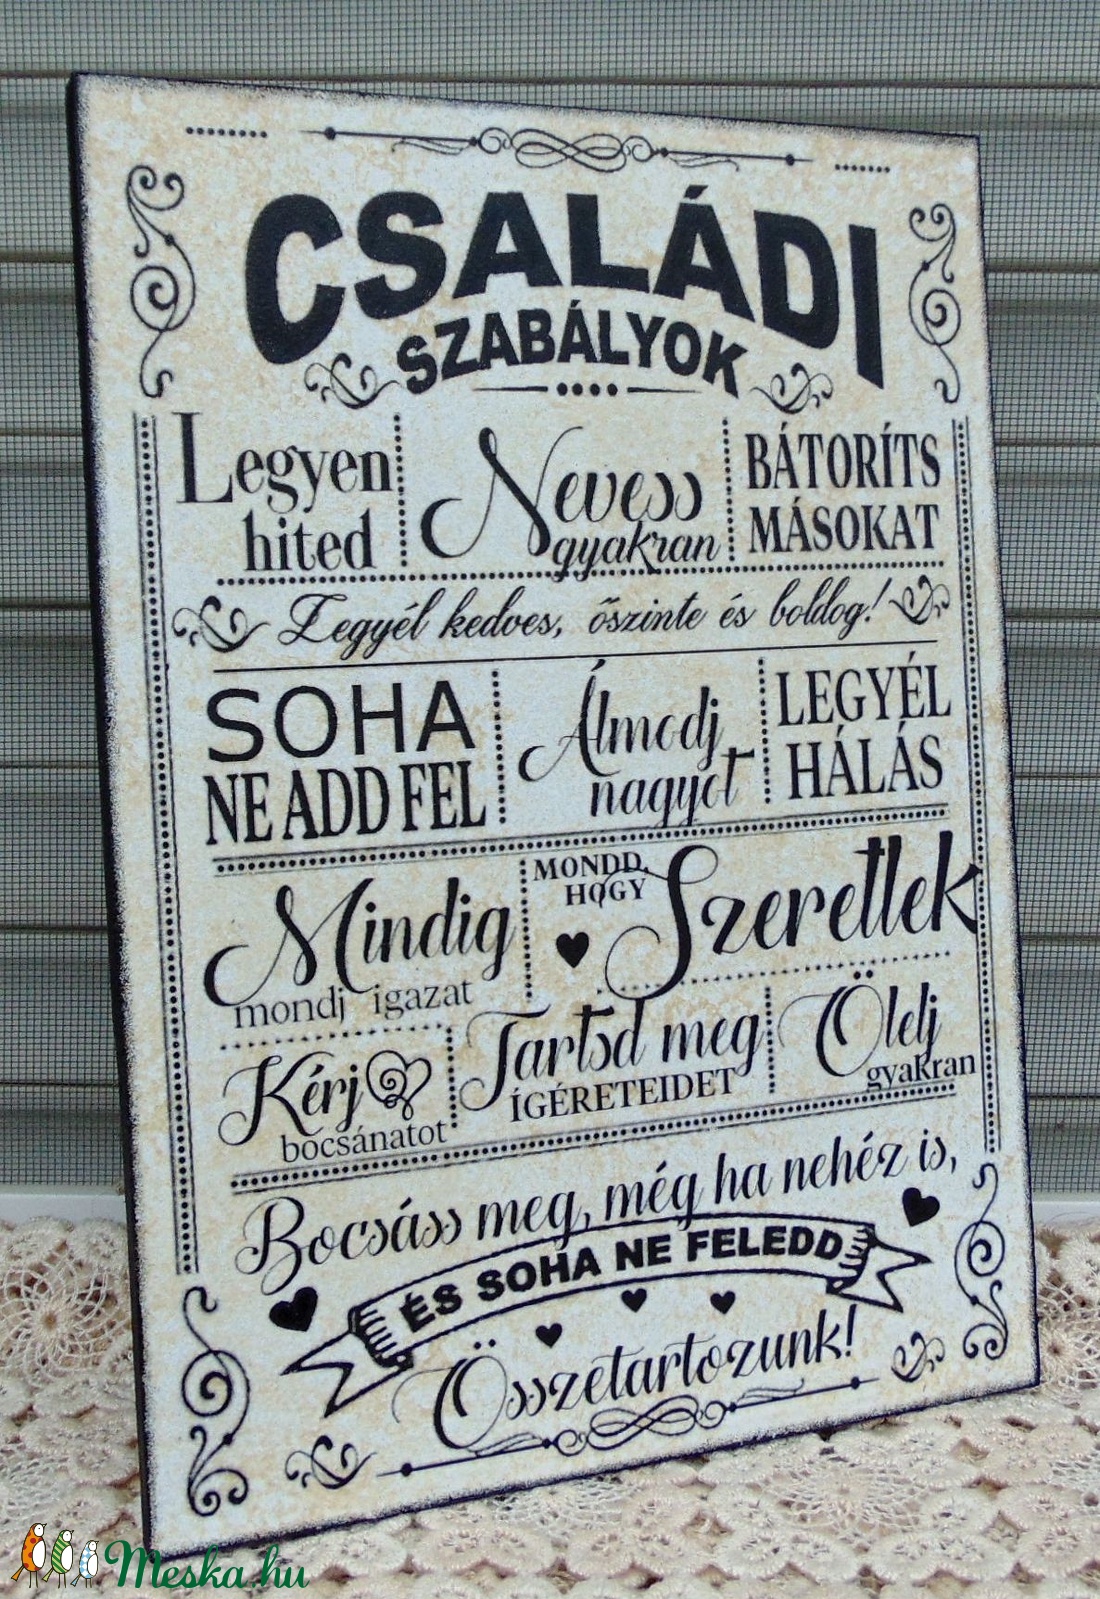 CSALÁDI
SZABÁLYOK
Legyen
hited
Nevess
gyakran
BÁTORÍTS
MÁSOKAT
Legyél kedves, őszinte és boldog!
SOHA
NE ADD FEL
Álmodj
nagyot
LEGYÉL
HÁLÁS
Mindig
mondj igazat
MONDD,
HOGY
Szeretlek
Kérj
bocsánatot
Tartsd meg
ÍGÉRETEIDET
Ölelj
gyakran
Bocsáss meg, még ha nehéz is,
ÉS SOHA NE FELEDD
Összetartozunk!
Meska.hu